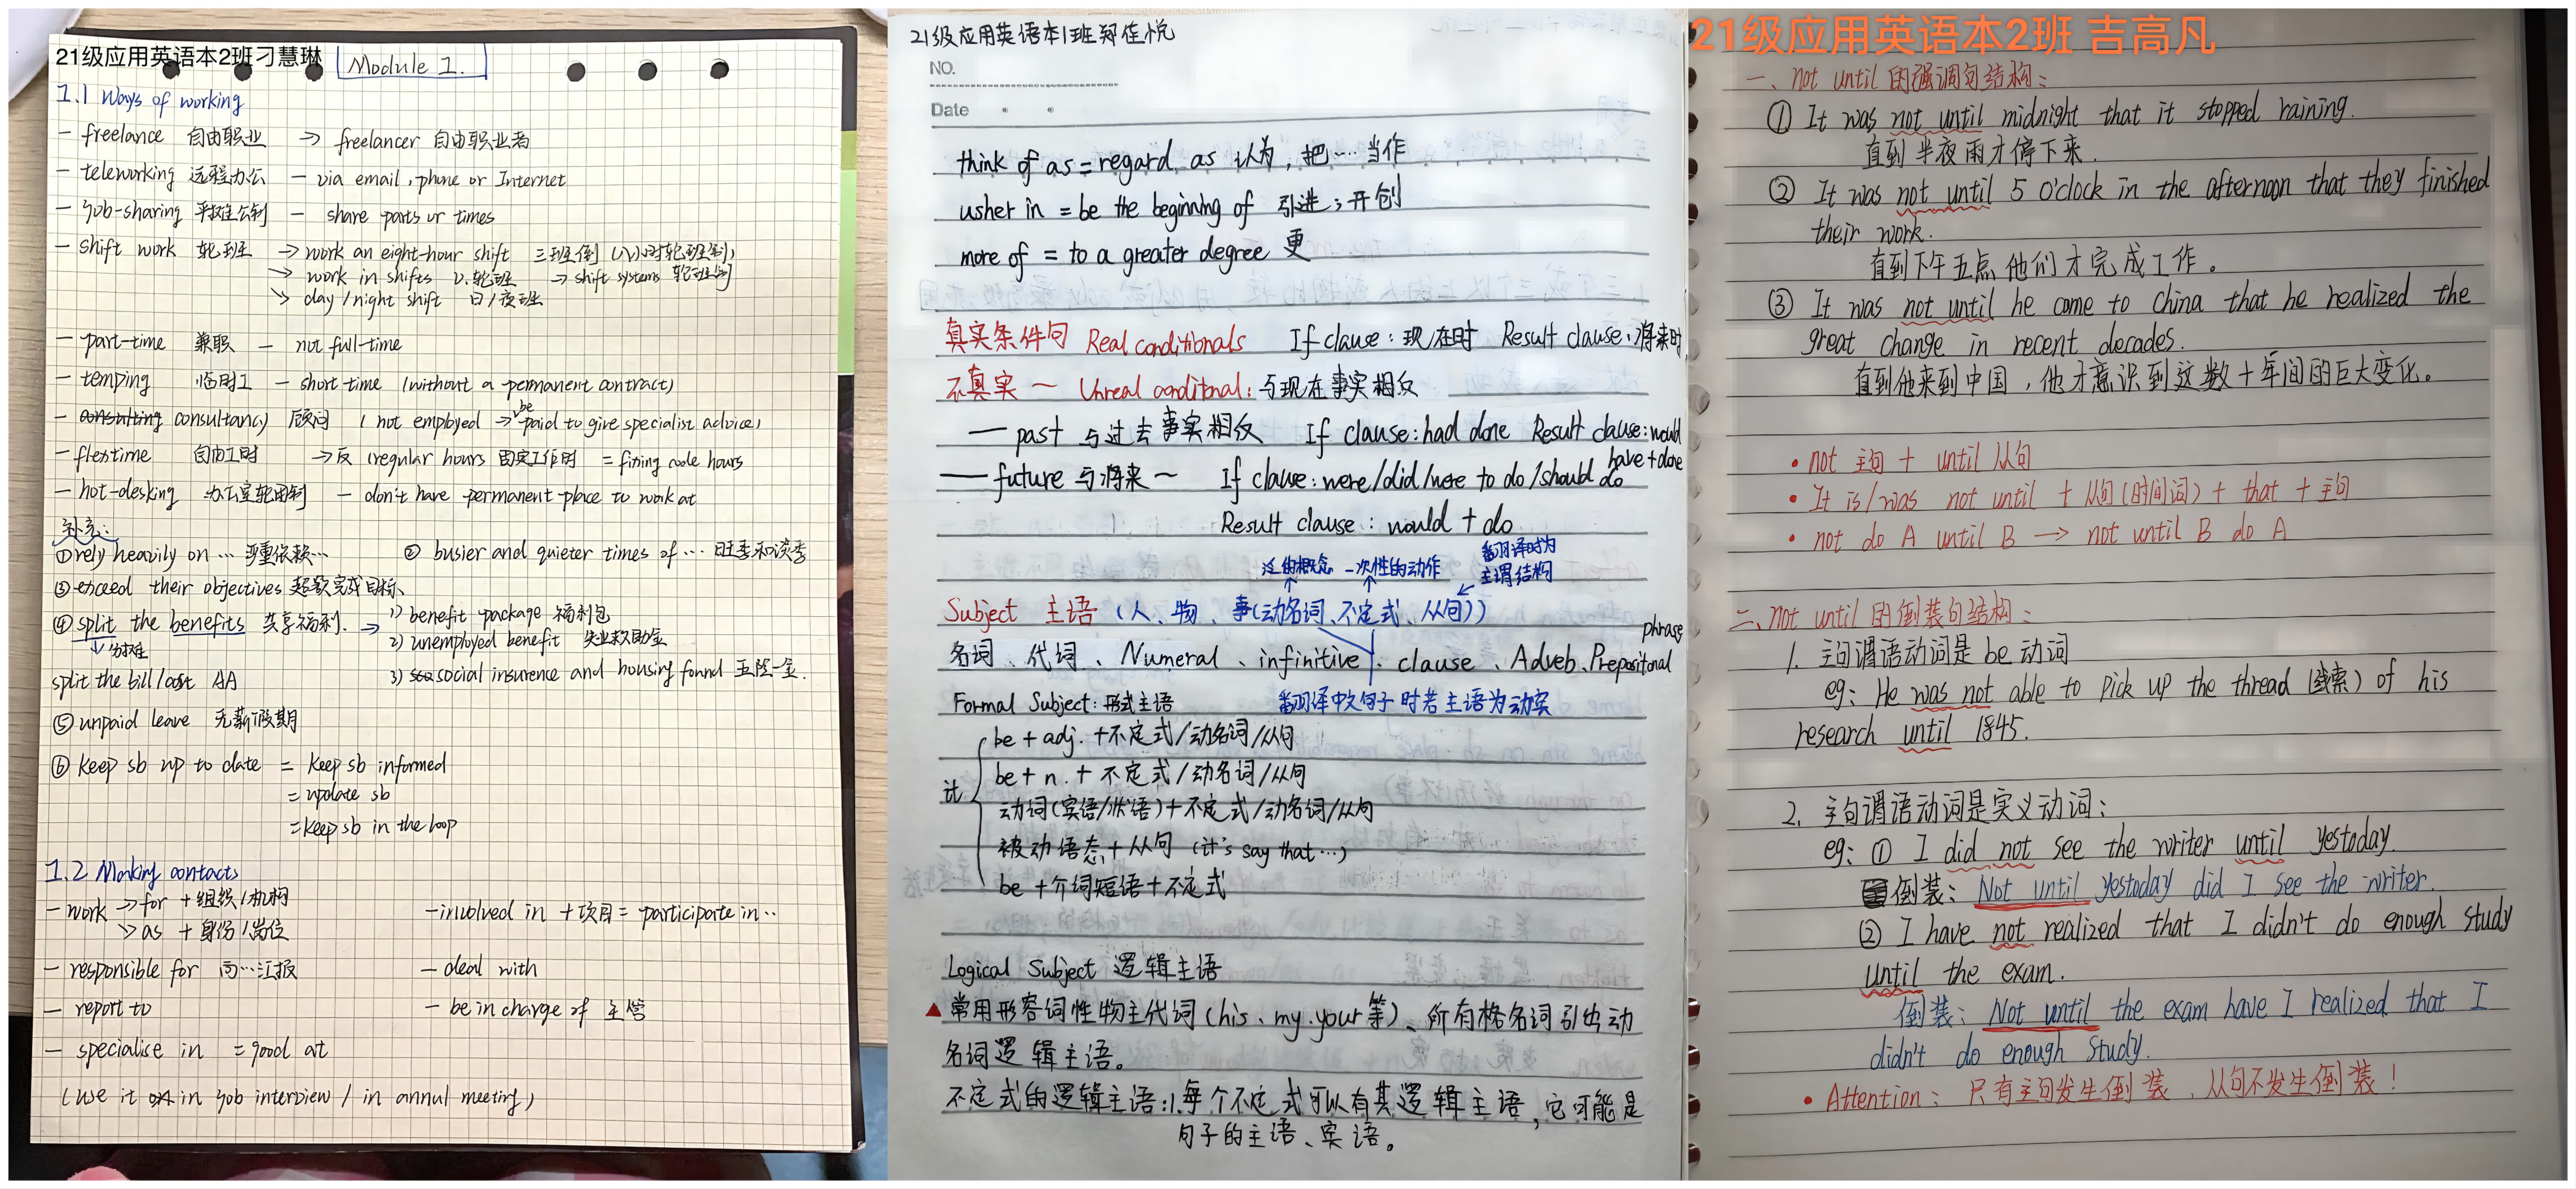 21级应用英语本2班刁慧琳
Module 1.
1.1 Ways of working
- freelance 自由职业 → freelancer 自由职业者
- teleworking 远程办公 - via email, phone or Internet
- job-sharing 平摊工作制 - share parts or times
- shift work 轮班 → work an eight-hour shift 三班倒 (八小时轮班制)
→ work in shifts v.轮班 → shift systems 轮班制
→ day/night shift 白/夜班
- part-time 兼职 - not full-time
- temping 临时工 - short time (without a permanent contract)
- consultancy 顾问 (not employed → be paid to give specialist advice)
- flextime 自由工时 → 反 (regular hours 固定工作时 = fixing hours
- hot-desking 办公室轮用制 - don't have permanent place to work at
补充:
①rely heavily on … 严重依赖… ② busier and quieter times of … 旺季和淡季
③exceed their objectives 超额完成目标
④split the benefits 共享福利. → 1) benefit package 福利包
↓分摊 2) unemployed benefit 失业救助金
split the bill/cost AA 3) social insurence and housing found 五险一金.
⑤unpaid leave 无薪假期
⑥ keep sb up to date = keep sb informed
= update sb
= keep sb in the loop
1.2 Making contacts
- work → for + 组织/机构 - involved in + 项目 = participate in..
→ as + 身份/岗位
- responsible for 向…汇报 - deal with
- report to - be in charge of 主管
- specialise in = good at
(use it in job interview / in annul meeting)
21级应用英语本1班郑佳悦
NO.
Date
think of as = regard as 认为, 把…当作
usher in = be the beginning of 引进;开创
more of = to a greater degree 更
真实条件句 Real conditionals If clause: 现在时 Result clause: 将来时
不真实 — Unreal conditional: 与现在事实相反
— past 与过去事实相反 If clause: had done Result clause: would have + done
— future 与将来~ If clause: were/did/were to do/should do
Result clause: would + do
泛的概念 一次性的动作 翻译时为主谓结构
Subject 主语 (人、物、事(动名词、不定式、从句))
名词、代词、Numeral、infinitive、clause、Adveb、Prepositonal phrase
Formal Subject: 形式主语 翻译中文句子时若主语为动宾
be + adj. + 不定式/动名词/从句
it be + n. + 不定式/动名词/从句
动词(宾语/状语)+不定式/动名词/从句
被动语态+从句 (it's say that …)
be + 介词短语 + 不定式
Logical Subject 逻辑主语
▲常用形容词性物主代词(his、my.your等)、所有格名词引出动
名词逻辑主语。
不定式的逻辑主语:1.每个不定式可以有其逻辑主语,它可能是
句子的主语、宾语。
21级应用英语本2班 吉高凡
一、not until 的强调句结构:
① It was not until midnight that it stopped raining.
直到半夜雨才停下来.
② It was not until 5 o'clock in the afternoon that they finished
their work.
直到下午五点他们才完成工作。
③ It was not until he came to China that he realized the
great change in recent decades.
直到他来到中国,他才意识到这数十年间的巨大变化。
• not 主句 + until 从句
• It is/was not until + 从句(时间词) + that + 主句
• not do A until B → not until B do A
二、not until 的倒装句结构:
1. 主句谓语动词是 be 动词
eg: He was not able to pick up the thread (线索) of his
research until 1845.
2. 主句谓语动词是实义动词:
eg: ① I did not see the writer until yestoday.
倒装: Not until yestoday did I see the writer.
② I have not realized that I didn't do enough study
until the exam.
倒装: Not until the exam have I realized that I
didn't do enough study.
• Attention: 只有主句发生倒装、从句不发生倒装!